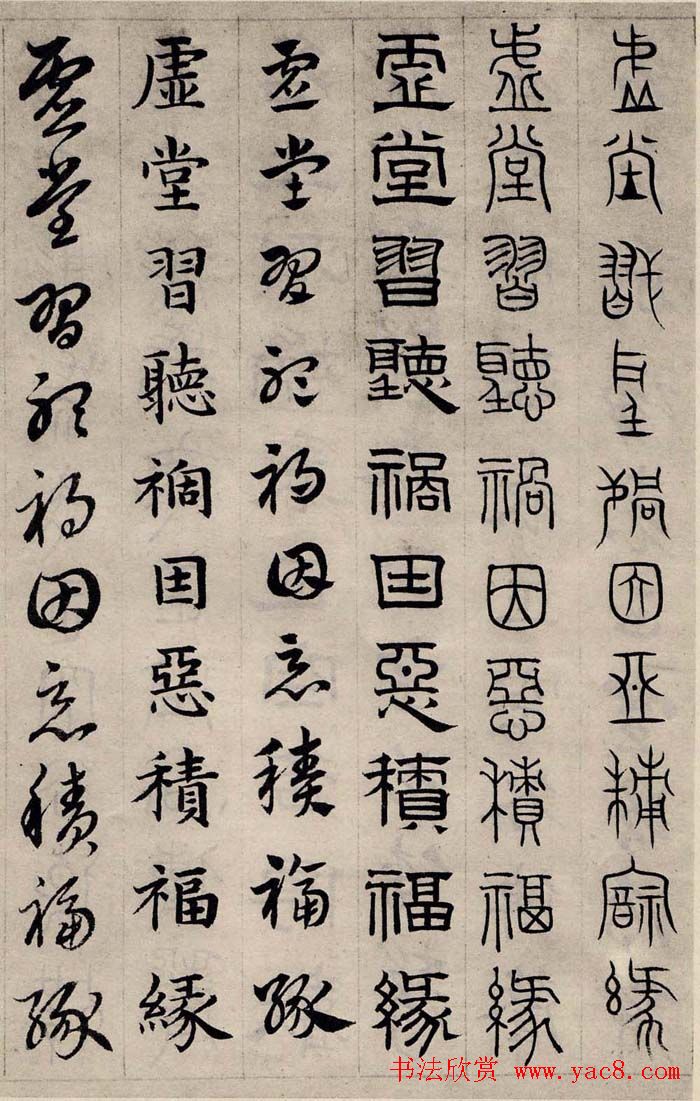 虛堂習聽禍因惡積福緣
虛堂習聽禍因惡積福緣
虛堂習聽禍因惡積福緣
虛堂習聽禍因惡積福緣
虛堂習聽禍因惡積福緣
虛堂習聽禍因惡積福緣
书法欣赏 www.yac8.com